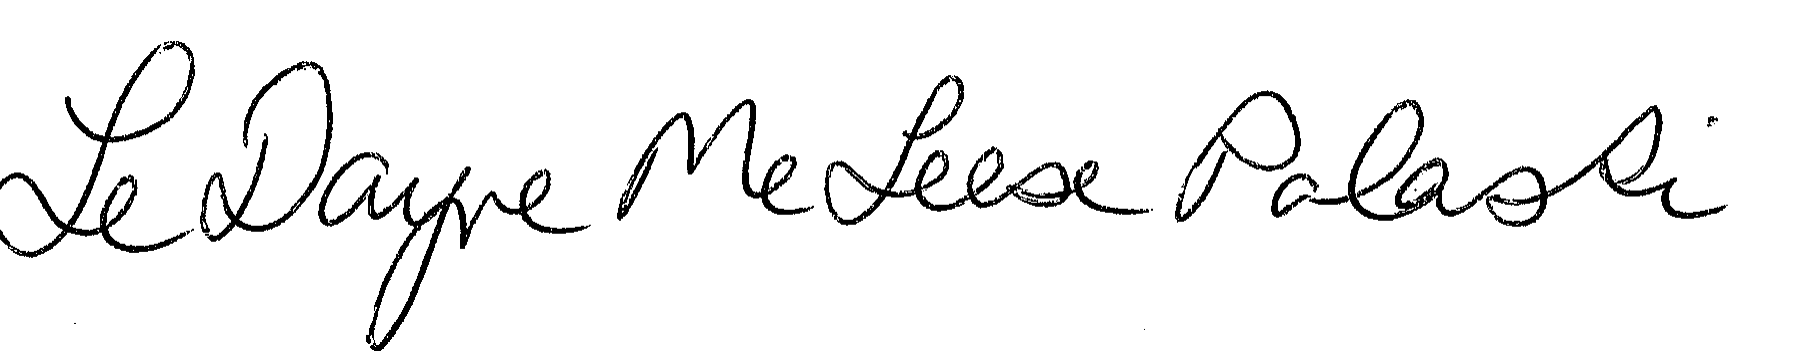 LeDayne McLeese Polaski